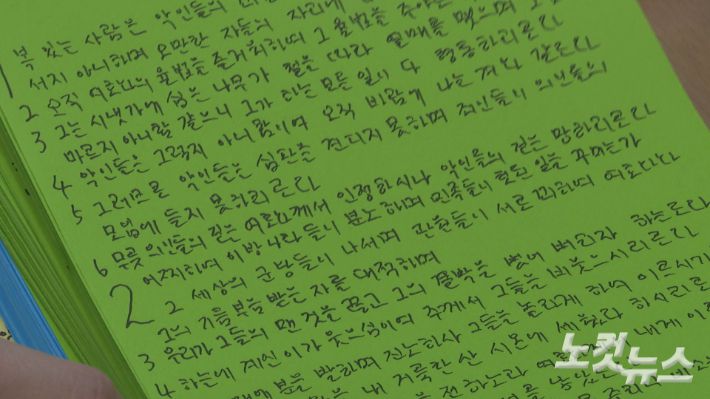 1 복 있는 사람은 악인들의
서지 아니하며 오만한 자들의 자리에
2 오직 여호와의 율법을 즐거워하여 그 율법을 주야로
3 그는 시냇가에 심은 나무가 철을 따라 열매를 맺으며 그
마르지 아니함 같으니 그가 하는 모든 일이 다 형통하리로다
4 악인들은 그렇지 아니함이여 오직 바람에 나는 겨와 같도다
5 그러므로 악인들은 심판을 견디지 못하며 죄인들이 의인들의
모임에 들지 못하리로다
6 무릇 의인들의 길은 여호와께서 인정하시나 악인들의 길은 망하리로다
2 어찌하여 이방 나라들이 분노하며 민족들이 헛된 일을 꾸미는가
2 세상의 군왕들이 나서며 관원들이 서로 꾀하여 여호와와
그의 기름 부음 받은 자를 대적하며
3 우리가 그들의 맨 것을 끊고 그의 결박을 벗어 버리자 하는도다
4 하늘에 계신 이가 웃으심이여 주께서 그들을 비웃으시리로다
분을 발하며 진노하사 그들을 놀라게 하여 이르시기
내 거룩한 산 시온에 세웠다 하시리로
을 전하노라 내게 이
노컷뉴스